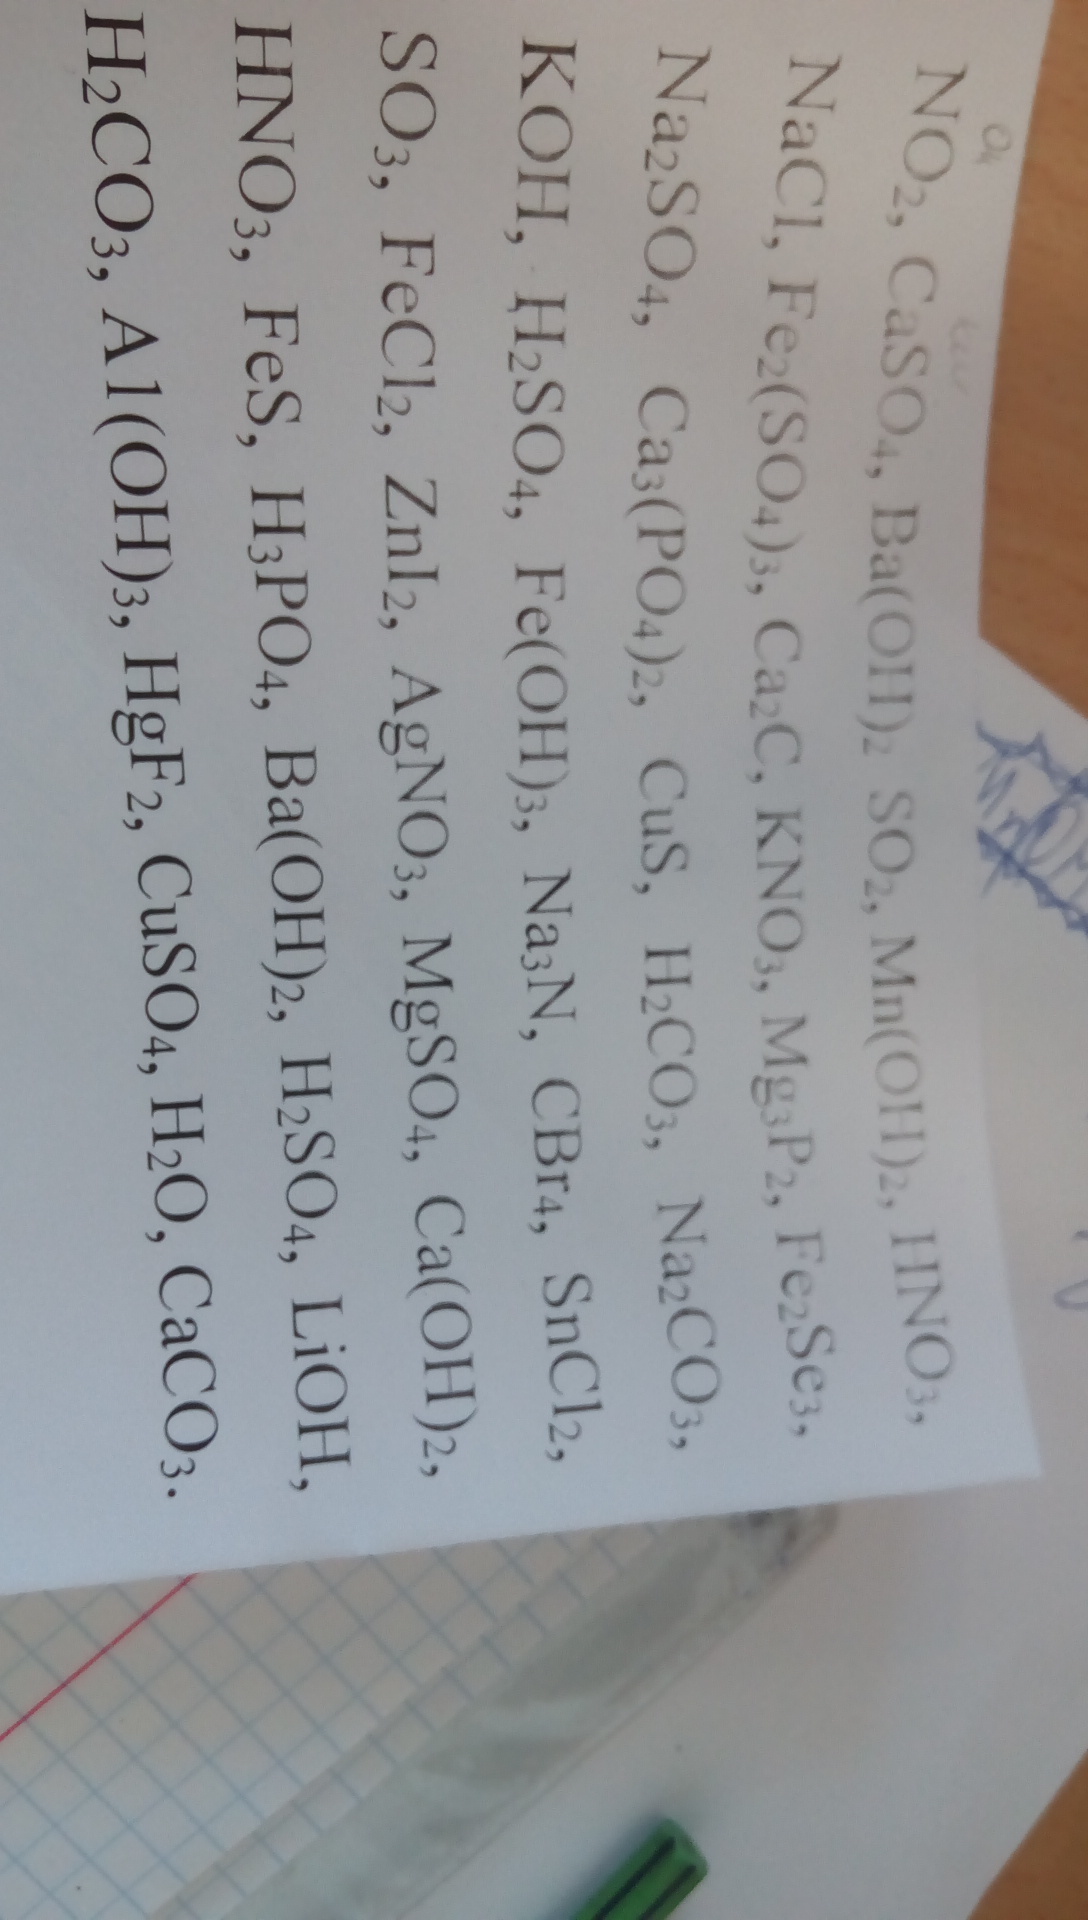 NO₂, CaSO₄, Ba(OH)₂ SO₂, Mn(OH)₂, HNO₃,
NaCl, Fe₂(SO₄)₃, Ca₂C, KNO₃, Mg₃P₂, Fe₂Se₃,
Na₂SO₄, Ca₃(PO₄)₂, CuS, H₂CO₃, Na₂CO₃,
KOH, H₂SO₄, Fe(OH)₃, Na₃N, CBr₄, SnCl₂,
SO₃, FeCl₂, ZnI₂, AgNO₃, MgSO₄, Ca(OH)₂,
HNO₃, FeS, H₃PO₄, Ba(OH)₂, H₂SO₄, LiOH,
H₂CO₃, Al(OH)₃, HgF₂, CuSO₄, H₂O, CaCO₃.